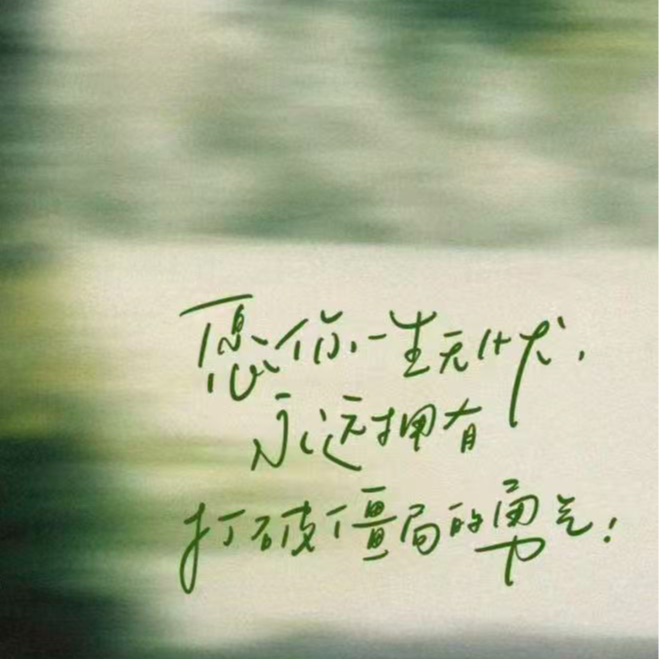 愿你一生无伏,
永远拥有
打破僵局的勇气!